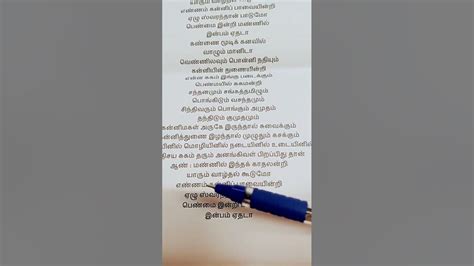 யாரும் வாழ்தல்
எண்ணம் கன்னிப் பாவையின்றி
ஏழு ஸ்வரந்தான் பாடுமோ
பெண்மை இன்றி மண்ணில்
இன்பம் ஏதடா
கண்ணை மூடிக் கனவில்
வாழும் மானிடா
வெண்ணிலவும் பொன்னி நதியும்
கன்னியின் துணையின்றி
என்ன சுகம் இங்கு படைக்கும்
பெண்மயில் சுகமன்றி
சந்தனமும் சங்கத்தமிழும்
பொங்கிடும் வசந்தமும்
சிந்திவரும் பொங்கும் அமுதம்
தந்திடும் குமுதமும்
கன்னிமகள் அருகே இருந்தால் சுவைக்கும்
ன்னித்துணை இழந்தால் முழுதும் கசக்கும்
யினில் மொழியினில் நடையினில் உடையினில்
சிய சுகம் தரும் அனங்கிவள் பிறப்பிது தான்
ஆண் : மண்ணில் இந்தக் காதலன்றி
யாரும் வாழ்தல் கூடுமோ
எண்ணம் கன்னிப் பாவையின்றி
ஏழு ஸ்வரந்
பெண்மை இன்றி
இன்பம் ஏதடா